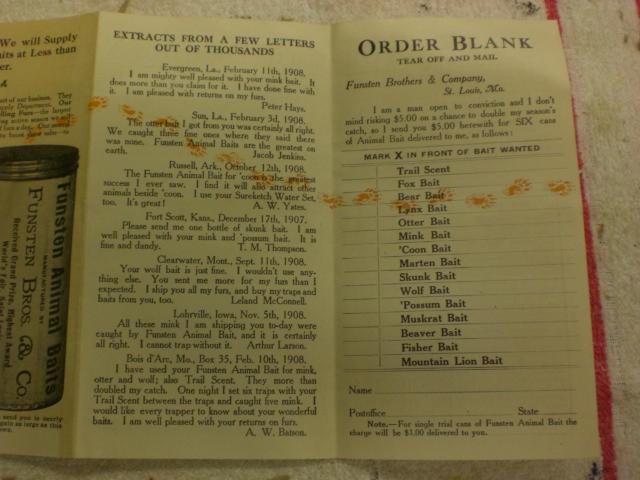 We will Supply
its at Less than
er.
A
rt of our business. They
pply Department. Our
lling Furs—the largest
Funsten Animal Baits
MANUFACTURED BY
FUNSTEN BROS. & CO.
Received Grand Prize, Highest Award
World's Fair, Saint
send you is nearly
gain as large as this
own.
EXTRACTS FROM A FEW LETTERS
OUT OF THOUSANDS
Evergreen, La., February 11th, 1908.
I am mighty well pleased with your mink bait. It
does more than you claim for it. I have done fine with
it. I am pleased with returns on my furs.
Peter Hays.
Sun, La., February 3d, 1908.
The otter bait I got from you was certainly all right.
We caught three fine ones where they said there
was none. Funsten Animal Baits are the greatest on
earth. Jacob Jenkins.
Russell, Ark., October 12th, 1908.
The Funsten Animal Bait for 'coon is the greatest
success I ever saw. I find it will also attract other
animals beside 'coon. I use your Sureketch Water Set,
too. It's great! A. W. Yates.
Fort Scott, Kans., December 17th, 1907.
Please send me one bottle of skunk bait. I am
well pleased with your mink and 'possum bait. It is
fine and dandy. T. M. Thompson.
Clearwater, Mont., Sept. 11th, 1908.
Your wolf bait is just fine. I wouldn't use any-
thing else. You sent me more for my furs than I
expected. I ship you all my furs, and buy my traps and
baits from you, too. Leland McConnell.
Lohrville, Iowa, Nov. 5th, 1908.
All these mink I am shipping you to-day were
caught by Funsten Animal Bait, and it is certainly
all right. I cannot trap without it. Arthur Larson.
Bois d'Arc, Mo., Box 35, Feb. 10th, 1908.
I have used your Funsten Animal Bait for mink,
otter and wolf; also Trail Scent. They more than
doubled my catch. One night I set six traps with your
Trail Scent between the traps and caught five mink. I
would like every trapper to know about your wonderful
baits. I am well pleased with your returns on furs.
A. W. Batson.
ORDER BLANK
TEAR OFF AND MAIL
Funsten Brothers & Company,
St. Louis, Mo.
I am a man open to conviction and I don't
mind risking $5.00 on a chance to double my season's
catch, so I send you $5.00 herewith for SIX cans
of Animal Bait delivered to me, as follows:
MARK X IN FRONT OF BAIT WANTED
Trail Scent
Fox Bait
Bear Bait
Lynx Bait
Otter Bait
Mink Bait
'Coon Bait
Marten Bait
Skunk Bait
Wolf Bait
'Possum Bait
Muskrat Bait
Beaver Bait
Fisher Bait
Mountain Lion Bait
Name
Postoffice State
Note.—For single trial cans of Funsten Animal Bait the
charge will be $1.00 delivered to you.